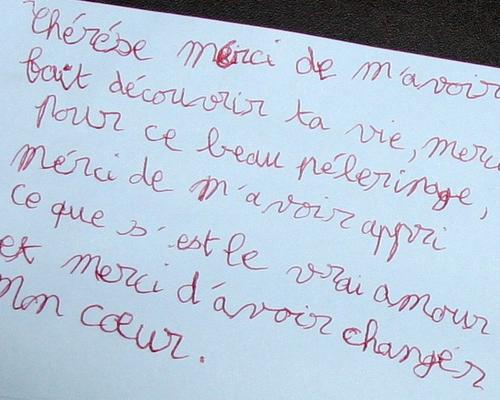 thérése merci de m'avoir
fait découvrir ta vie, merci
pour ce beau pélerinage,
mérci de m'avoir appri
ce que s'est le vrai amour
et merci d'avoir changér
mon cœur.